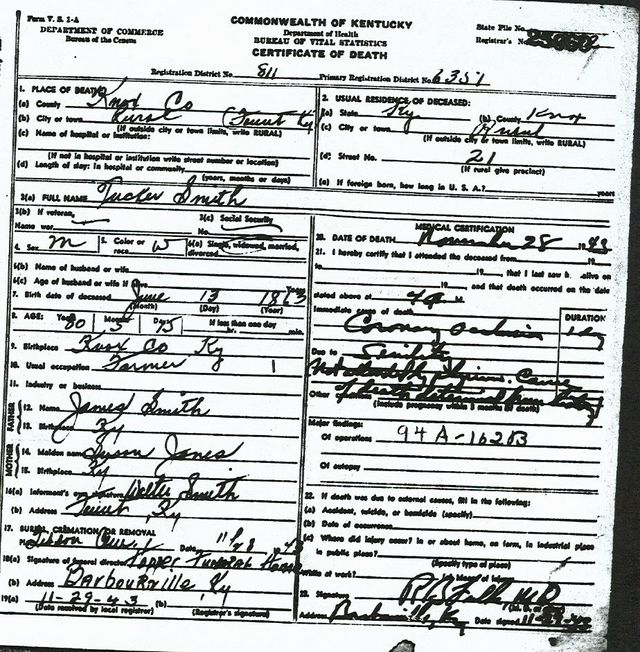 Form V. S. 1-A
DEPARTMENT OF COMMERCE
Bureau of the Census
COMMONWEALTH OF KENTUCKY
Department of Health
BUREAU OF VITAL STATISTICS
CERTIFICATE OF DEATH
State File No.
Registrar's No.
Registration District No. 811 Primary Registration District No. 6351
1. PLACE OF DEATH
(a) County Knox Co
(b) City or town Rural
(If outside city or town limits, write RURAL)
(c) Name of hospital or institution:
(If not in hospital or institution write street number or location)
(d) Length of stay: In hospital or community
(years, months or days)
2. USUAL RESIDENCE OF DECEASED:
(a) State Ky (b) County Knox
(c) City or town Rural
(If outside city or town limits, write RURAL)
(d) Street No. 21
(If rural give precinct)
(e) If foreign born, how long in U. S. A.? years
3(a) FULL NAME Tucker Smith
3(b) If veteran,
Name war
3(c) Social Security
No.
4. Sex M 5. Color or race W 6(a) Single, widowed, married, divorced
6(b) Name of husband or wife
6(c) Age of husband or wife if alive years
7. Birth date of deceased June 13 1863
(Month) (Day) (Year)
8. AGE: Years 80 Months 5 Days 15 If less than one day
hr. min.
9. Birthplace Knox Co Ky
10. Usual occupation Farmer
11. Industry or business
FATHER
12. Name James Smith
13. Birthplace Ky
MOTHER
14. Maiden name Jones
15. Birthplace Ky
16(a) Informant's own signature Smith
(b) Address Ky
17. BURIAL, CREMATION OR REMOVAL
Date 11/28 43
18(a) Signature of funeral director Funeral Home
(b) Address Barbourville, Ky
19(a) 11-29-43 (b)
(Date received by local registrar) (Registrar's signature)
MEDICAL CERTIFICATION
20. DATE OF DEATH November 28 1943
21. I hereby certify that I attended the deceased from 19
to 19 , that I last saw h alive on
19 , and that death occurred on the date
stated above at M.
Immediate cause of death
DURATION
Coronary occlusion 1 day
Due to Senility
Not attended by physician. Cause
Other of death determined from history
(Include pregnancy within 3 months of death)
Major findings:
Of operations 94A-162B
Of autopsy
22. If death was due to external causes, fill in the following:
(a) Accident, suicide, or homicide (specify)
(b) Date of occurrence
(c) Where did injury occur? In or about home, on farm, in industrial place
in public place?
(Specify type of place)
While at work?
23. Signature M.D.
Address Barbourville, Ky Date signed 11-29-43